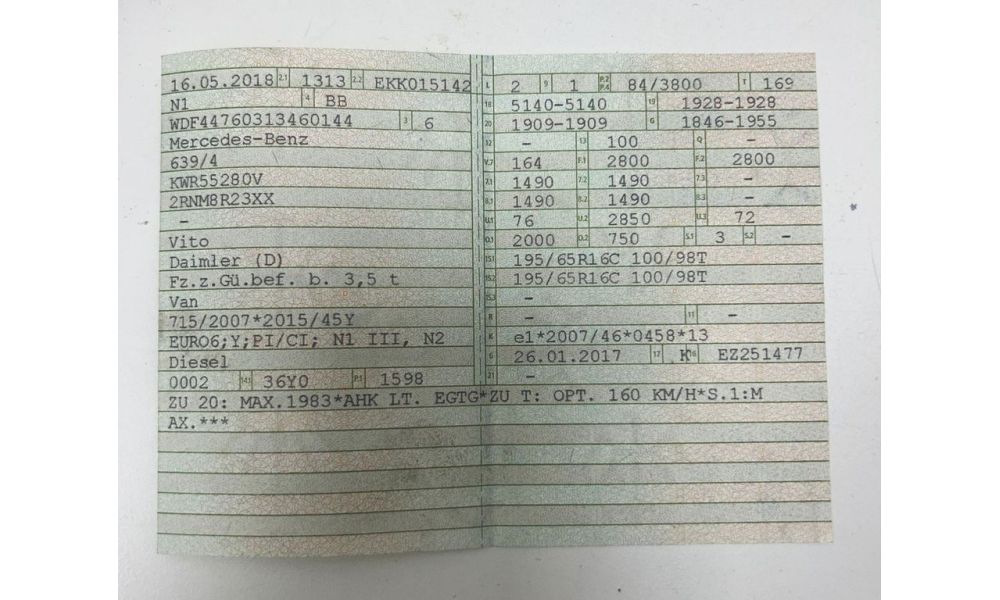 16.05.2018 2.1 1313 2.2 EKK015142
N1 4 BB
WDF44760313460144 3 6
Mercedes-Benz
639/4
KWR55280V
2RNM8R23XX
–
Vito
Daimler (D)
Fz.z.Gü.bef. b. 3,5 t
Van
715/2007*2015/45Y
EURO6;Y;PI/CI; N1 III, N2
Diesel
0002 14.1 36Y0 P.1 1598
L 2 9 1 P.2 P.4 84/3800 T 169
18 5140-5140 19 1928-1928
20 1909-1909 G 1846-1955
12 – 13 100 Q –
V.7 164 F.1 2800 F.2 2800
7.1 1490 7.2 1490 7.3 –
8.1 1490 8.2 1490 8.3 –
U.1 76 U.2 2850 U.3 72
O.1 2000 O.2 750 S.1 3 S.2 –
15.1 195/65R16C 100/98T
15.2 195/65R16C 100/98T
15.3 –
R – 11 –
K e1*2007/46*0458*13
6 26.01.2017 17 K 16 EZ251477
21 –
ZU 20: MAX.1983*AHK LT. EGTG*ZU T: OPT. 160 KM/H*S.1:M
AX.***